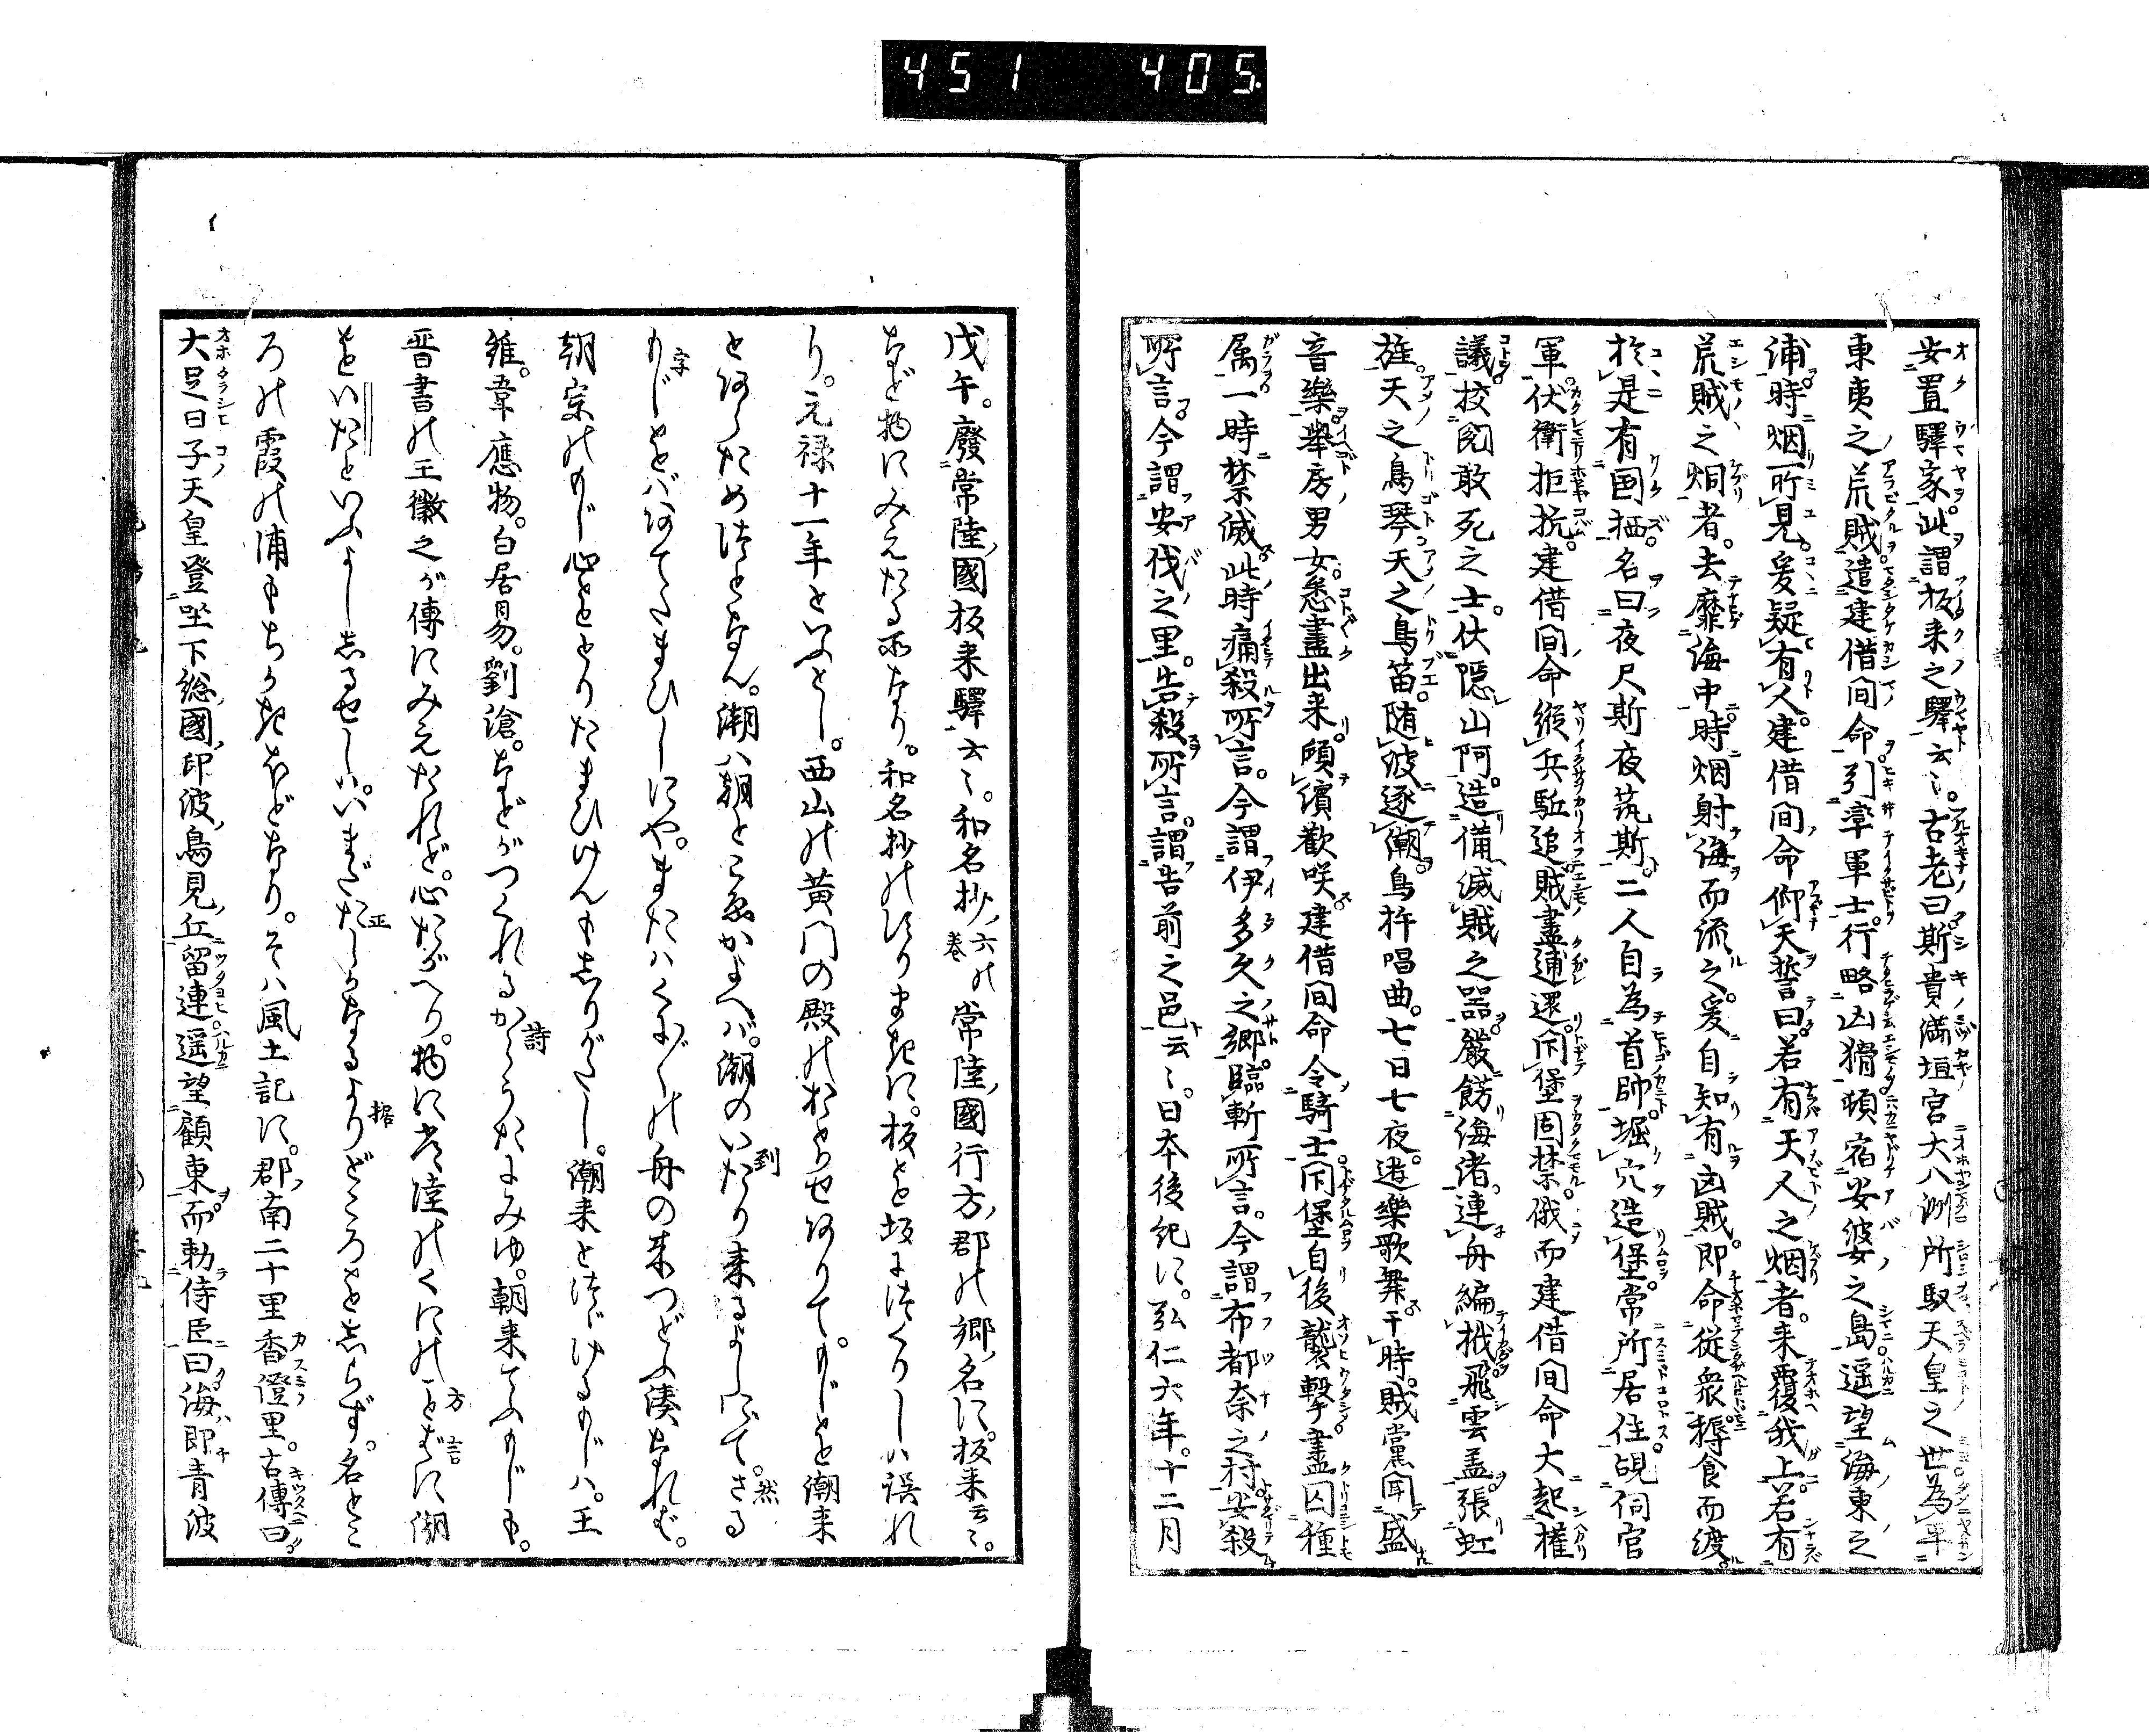 451 405
安置驛家此謂板来之驛云〻古老曰斯貴満垣宮大八洲所馭天皇之世為平
東夷之荒賊遣建借間命引率軍士行略凶猾頓宿安婆之島遥望海東之
浦時烟所見爰疑有人建借間命仰天誓曰若有天人之烟者来覆我上若有
荒賊之烟者去靡海中時烟射海而流之爰自知有凶賊即命従衆褥食而渡
於是有国栖名曰夜尺斯夜筑斯二人自為首帥堀穴造堡常所居住覘伺官
軍伏衛拒抗建借間命縦兵駈追賊盡逋還閇堡固禁俄而建借間命大起権
議挍閲敢死之士伏隠山阿造備滅賊之器厳餝海渚連舟編栰飛雲盖張虹
旌天之鳥琴天之鳥笛随波逐潮鳥杵唱曲七日七夜遊樂歌舞于時賊黨聞盛
音樂舉房男女悉盡出来傾濱歡咲建借間命令騎士閇堡自後襲撃盡囚種
属一時禁滅此時痛殺所言今謂伊多久之郷臨斬所言今謂布都奈之村安殺
所言今謂安伐之里吉殺所言謂吉前之邑云〻日本後紀に弘仁六年十二月
戊午廢常陸國板来驛云〻和名抄六の巻常陸國行方郡の郷名に板来云〻
など物にみえたる所なり和名抄のすりまきに板を坂につくりしハ誤れ
り元禄十一年といふとし西山の黄門の殿のおほせありてもじを潮来
とあらためつとなん潮ハ朝とこゑかよへバ潮のいたり来るよしにてさる
もじをバあてたまひしにやまたハくにぐの舟の来つどふ湊なれば
朝宗のもじ心をとりたまひけんもしりがたし潮来とつゞけるもじハ王
維韋應物白居易劉滄などがつくれるからうたにみゆ朝来てふもじも
晋書の王徽之が傳にみえたれど心たがへり物に常陸のくにの方言に潮
をいたといふよししるせしハいまだたしかなるよりどころをしらず名とこ
ろの霞の浦もちかきほどなりそハ風土記に郡南二十里香澄里古傳曰
大足日子天皇登坐下総國印波鳥見丘留連遥望顧東而勅侍臣曰海即青波